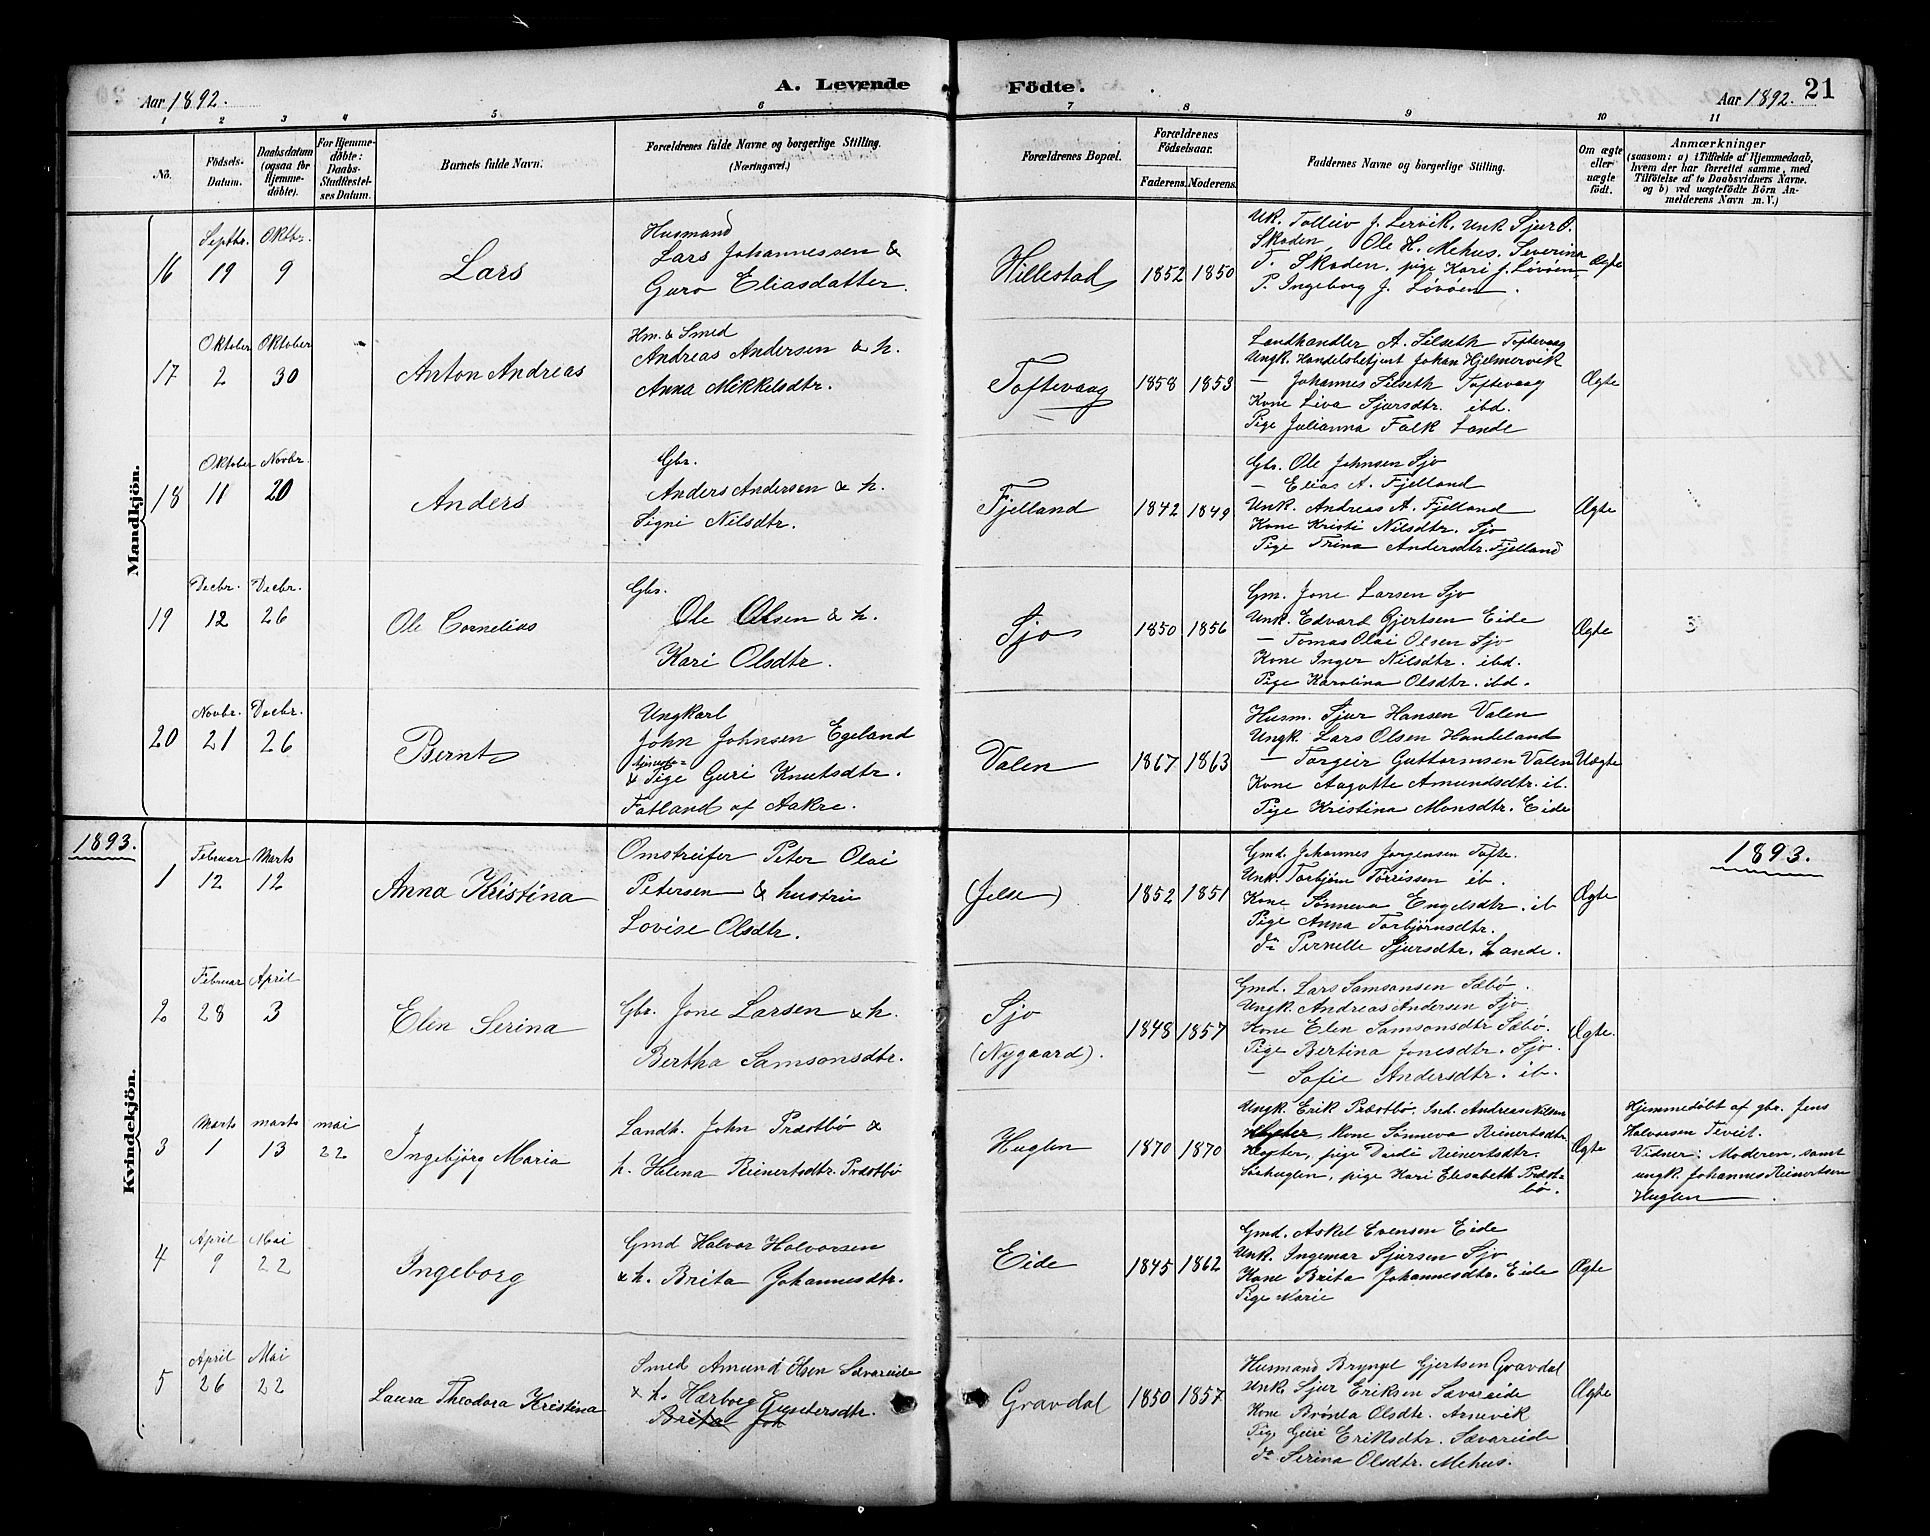 Aar 1892.
A. Levende
Födte.
Aar 1892.
21
1 2 3 4 5 6 7 8 9 10 11
No.
Födsels-Datum.
Daabsdatum (ogsaa for Hjemmedöbte).
For Hjemmedöbte: Daabs-Stadfæstelses Datum.
Barnets fulde Navn.
Forældrenes fulde Navne og borgerlige Stilling. (Næringsvei.)
Forældrenes Bopæl.
Forældrenes Födselsaar.
Faderens. Moderens.
Faddernes Navne og borgerlige Stilling.
Om ægte eller uægte födt.
Anmærkninger
(saasom: a) i Tilfælde af Hjemmedaab, hvem der har forrettet samme, med Tilföielse af to Daabsvidners Navne. og b) ved uægtefödte Börn Anmelderens Navn m. V.)
Mandkjön.
16
Septbr. 19
Oktbr. 9
Lars
Husmand
Lars Johannessen &
Guro Eliasdatter.
Hillestad
1852 1850
Uk. Tolleiv J. Lervik, Unk Sjur O.
Skoden, Ole H. Mehus, Severina
T. Skoden, pige Kari J. Løvøen
P. Ingeborg J. Løvøen.
Ægte
17
Oktober 2
Oktober 30
Anton Andreas
Hm. & Smed
Andreas Andersen & h.
Anna Mikkelsdtr.
Toftevaag
1858 1853
Landhandler A. Silseth Toftevaag
Ungk. Handelsbetjent Johan Hjelmervik
— Johannes Silseth Toftevaag
Kone Liva Sjursdtr. ibd.
Pige Julianna Falk Lande
Ægte
18
Oktober 11
Novbr. 20
Anders
Gbr.
Anders Andersen & h.
Signi Nilsdtr.
Fjelland
1842 1849
Gbr. Ole Johnsen Sjo
— Elias A. Fjelland
Unk. Andreas A. Fjelland
Kone Kristi Nilsdtr. Sjo
Pige Trina Andersdtr. Fjelland
Ægte
19
Decbr. 12
Decbr. 26
Ole Cornelius
Gbr.
Ole Olsen & h.
Kari Olsdtr.
Sjo
1850 1856
Gm. Jone Larsen Sjo
Unk. Edvard Gjertsen Eide
— Tomas Olai Olsen Sjo
Kone Inger Nilsdtr. ibd.
Pige Karolina Olsdtr. ibd.
Ægte
20
Novbr. 21
Decbr. 26
Bernt
Ungkarl
John Johnsen Egeland
& Pige Guri Knutsdtr.
Fatland af Aakre.
Valen
1867 1863
Husm. Sjur Hansen Valen
Ungk. Lars Olsen Handeland
— Torgeir Guttormsen Valen
Kone Aagotte Amundsdtr. ib.
Pige Kristina Monsdtr. Eide
Uægte
1893.
1893.
Kvindekjön.
1
Februar 12
Marts 12
Anna Kristina
Omstreifer Peter Olai
Petersen & hustru
Lovise Olsdtr.
(Jelse)
1852 1851
Gmd. Johannes Jørgensen Tofte.
Unk. Torbjørn Torrissen ib.
Kone Sønneva Engelsdtr. ib
Pige Anna Torbjørnsdtr.
do Pernelle Sjursdtr. Lande.
Ægte
2
Februar 28
April 3
Elen Serina
Gbr. Jone Larsen & h.
Bertha Samsonsdtr.
Sjo
(Nygaard).
1848 1857
Gmd. Lars Samsonsen Sæbø.
Ungk. Andreas Andersen Sjo
Kone Elen Samsonsdtr Sæbø.
Pige Bertina Jonesdtr. Sjo.
— Sofie Andersdtr. ib.
Ægte.
3
Marts 1
marts 13
mai 22
Ingebjørg Maria
Landh. John Præstbø &
h. Helena Reinertsdtr. Præstbø
Huglen
1870 1870
Ungk. Erik Præstbø. Ind. Andreas Nilsen
Klopter, Kone Sønneva Reinertsdtr.
Klopter, pige Dordi Reinertsdtr.
Huglen, pige Kari Elisabeth Præst-
bø.
Ægte
Hjemmedøbt af gbr. Jens
Halvorsen Teveit.
Vidner: Moderen, samt
ungk. Johannes Reinertsen
Huglen.
4
April 9
Mai 22
Ingeborg
Gmd Halvor Halvorsen
& h. Brita Johannesdtr.
Eide
1845 1862
Gmd. Askel Evensen Eide
Unk. Ingemar Sjursen Sjo
Kone Brita Johannesdtr. Eide
Pige Marie
Ægte
5
April 26
Mai 22
Laura Theodora Kristina
Smed Amund Olsen Sævareide
& h. Hærborg Gundersdtr.
Brita Joh
Gravdal
1850 1857
Husmand Bryngel Gjertsen Gravdal
Unk. Sjur Eriksen Sævareide
Kone Brønla Olsdtr. Arnevik
Pige Guri Eriksdtr. Sævareide
do Serina Olsdtr. Mehus.
Ægte